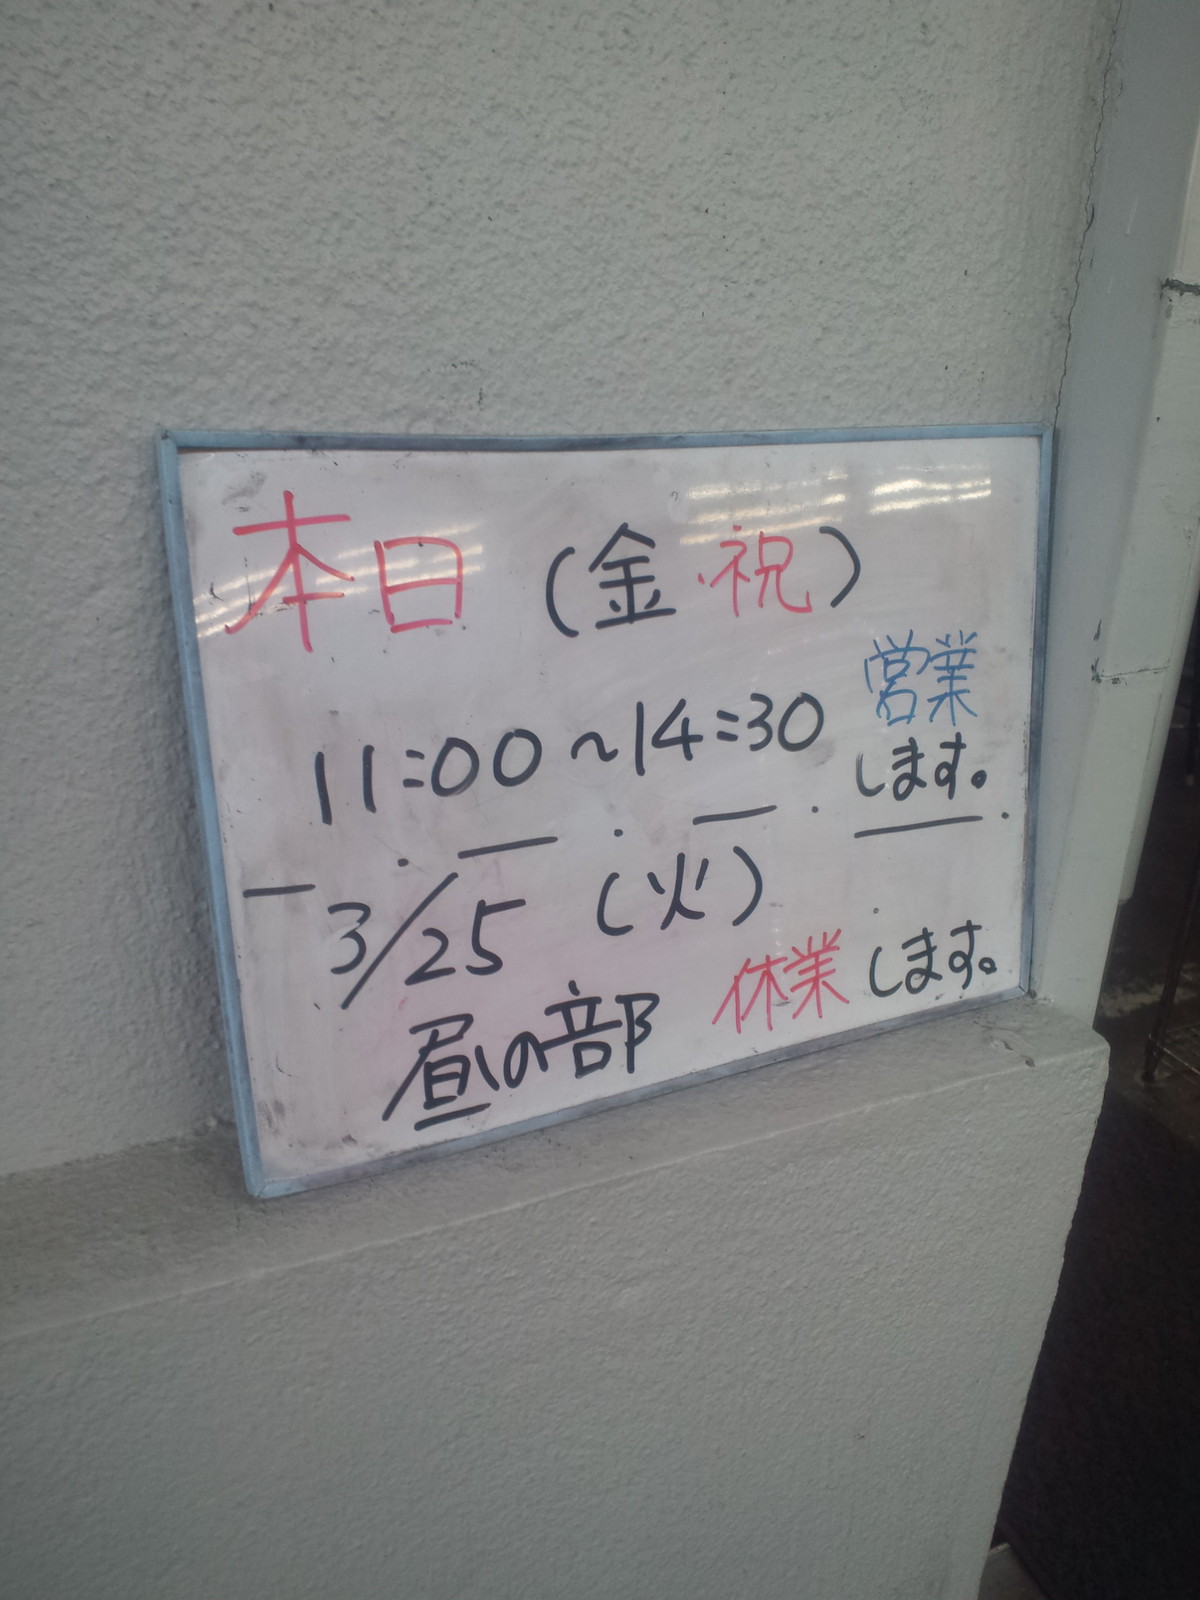 本日(金・祝)
11:00~14:30 営業します。
3/25(火)
昼の部 休業します。